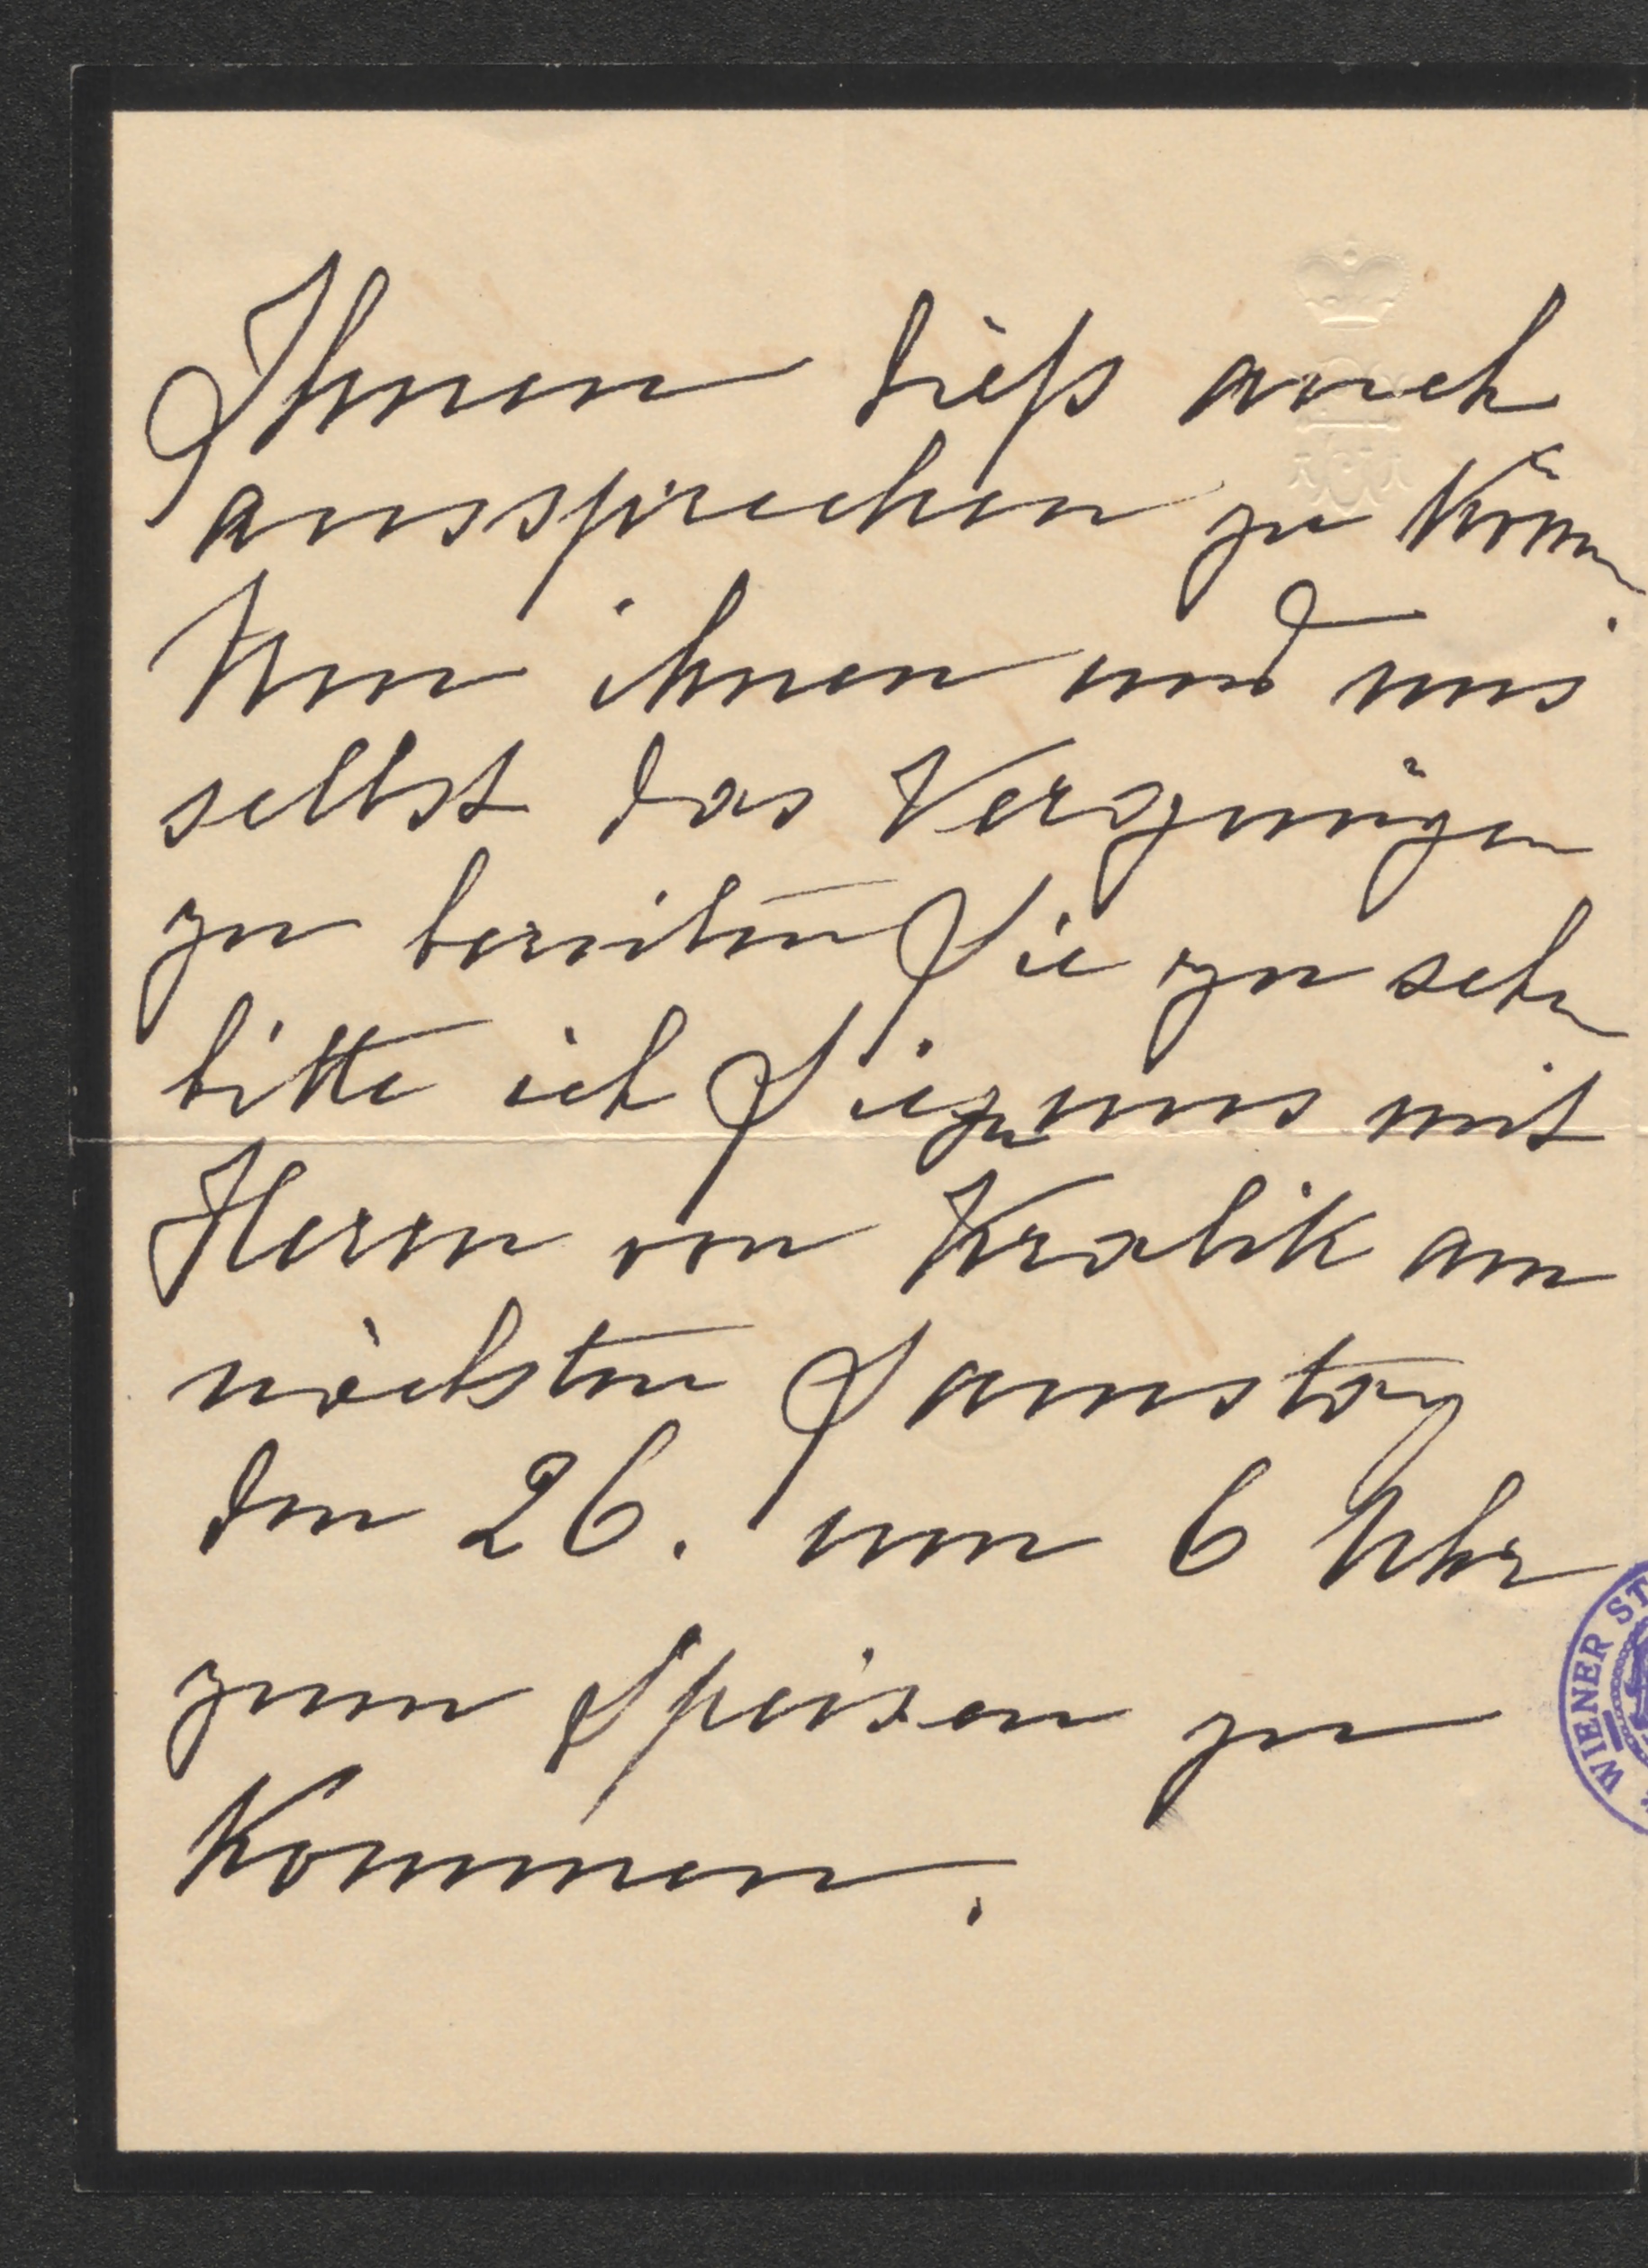 Ihnen dieß auch
aussprechen zu könn
Um ihnen und uns
selbst das Vergnügen
zu bereiten Sie zu sehn
bitte ich Sie zu uns mit
Herrn von Kralik am
nächsten Samstag
den 26. um 6 Uhr
zum Speisen zu
kommen.
WIENER ST